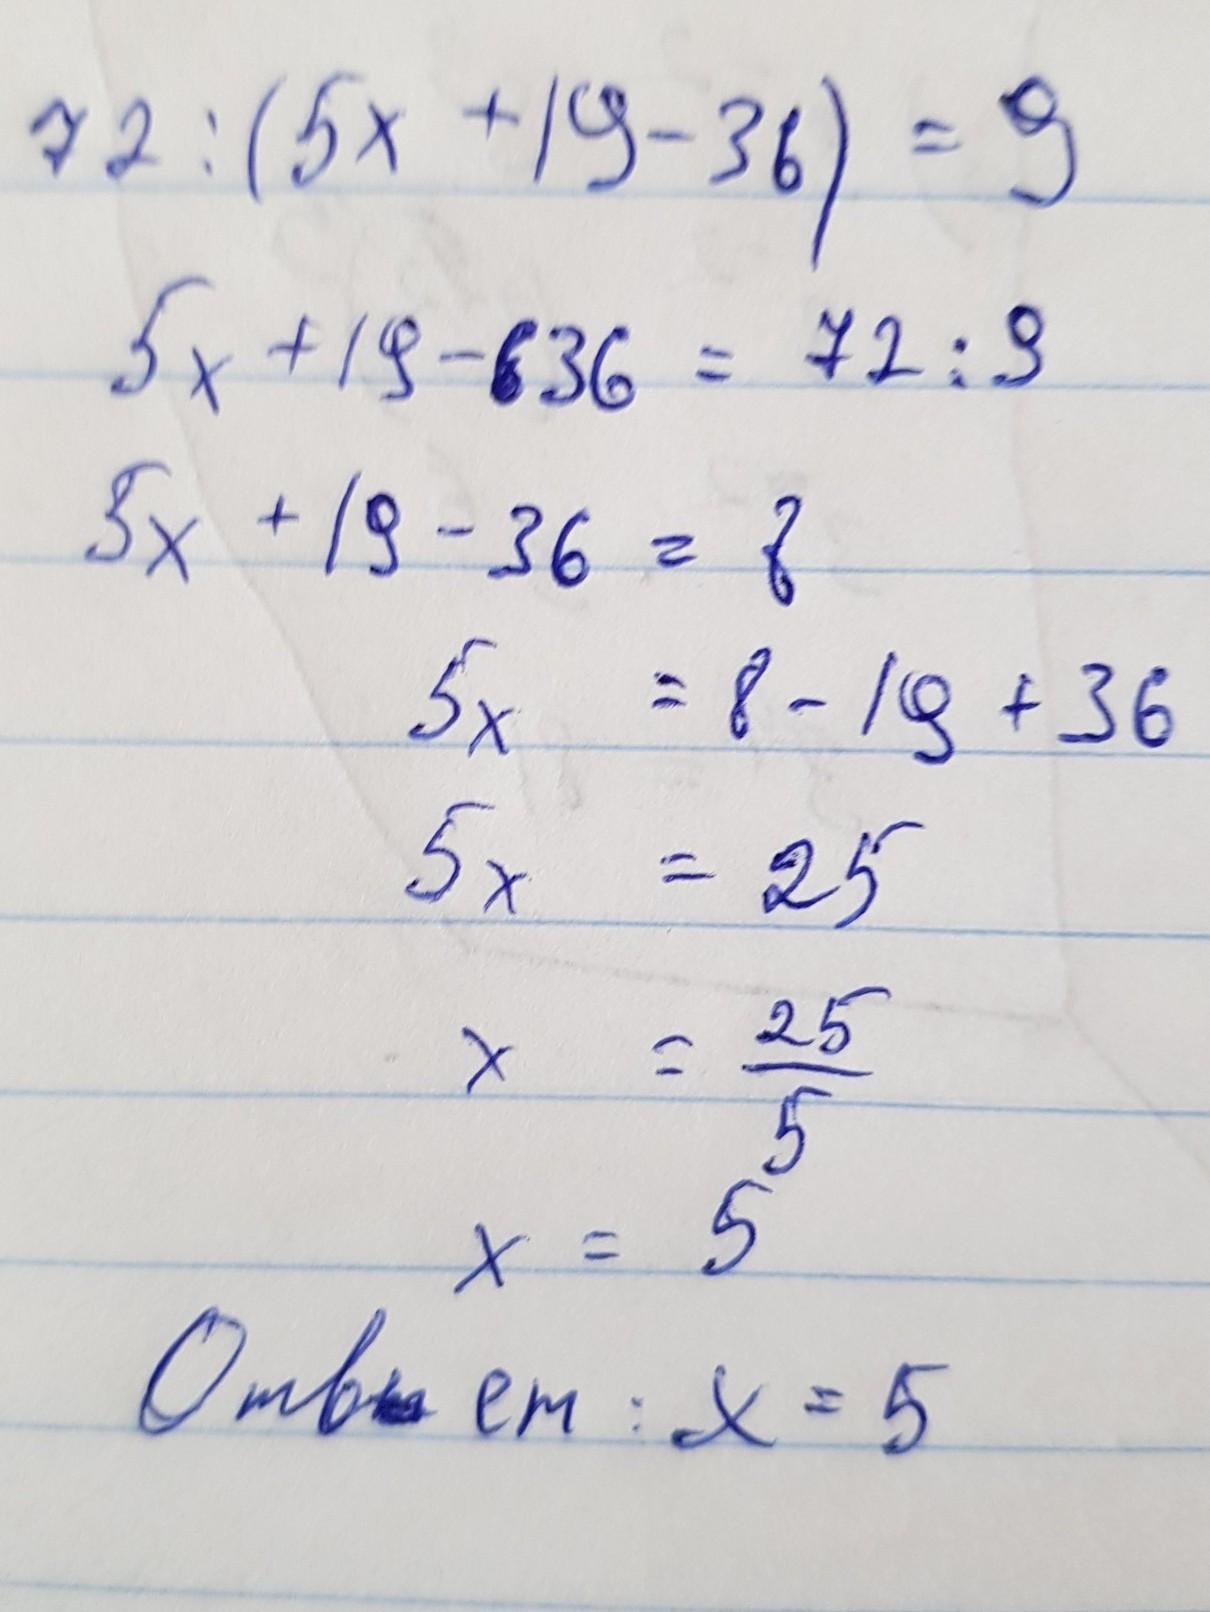 72 : (5x + 19 - 36) = 9
5x + 19 - 36 = 72 : 9
5x + 19 - 36 = 8
5x = 8 - 19 + 36
5x = 25
x = 25/5
x = 5
Ответ : x = 5